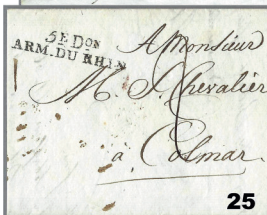 5E DON
ARM. DU RHIN
A Monsieur
M. J. Chevalier
a Colmar.
25